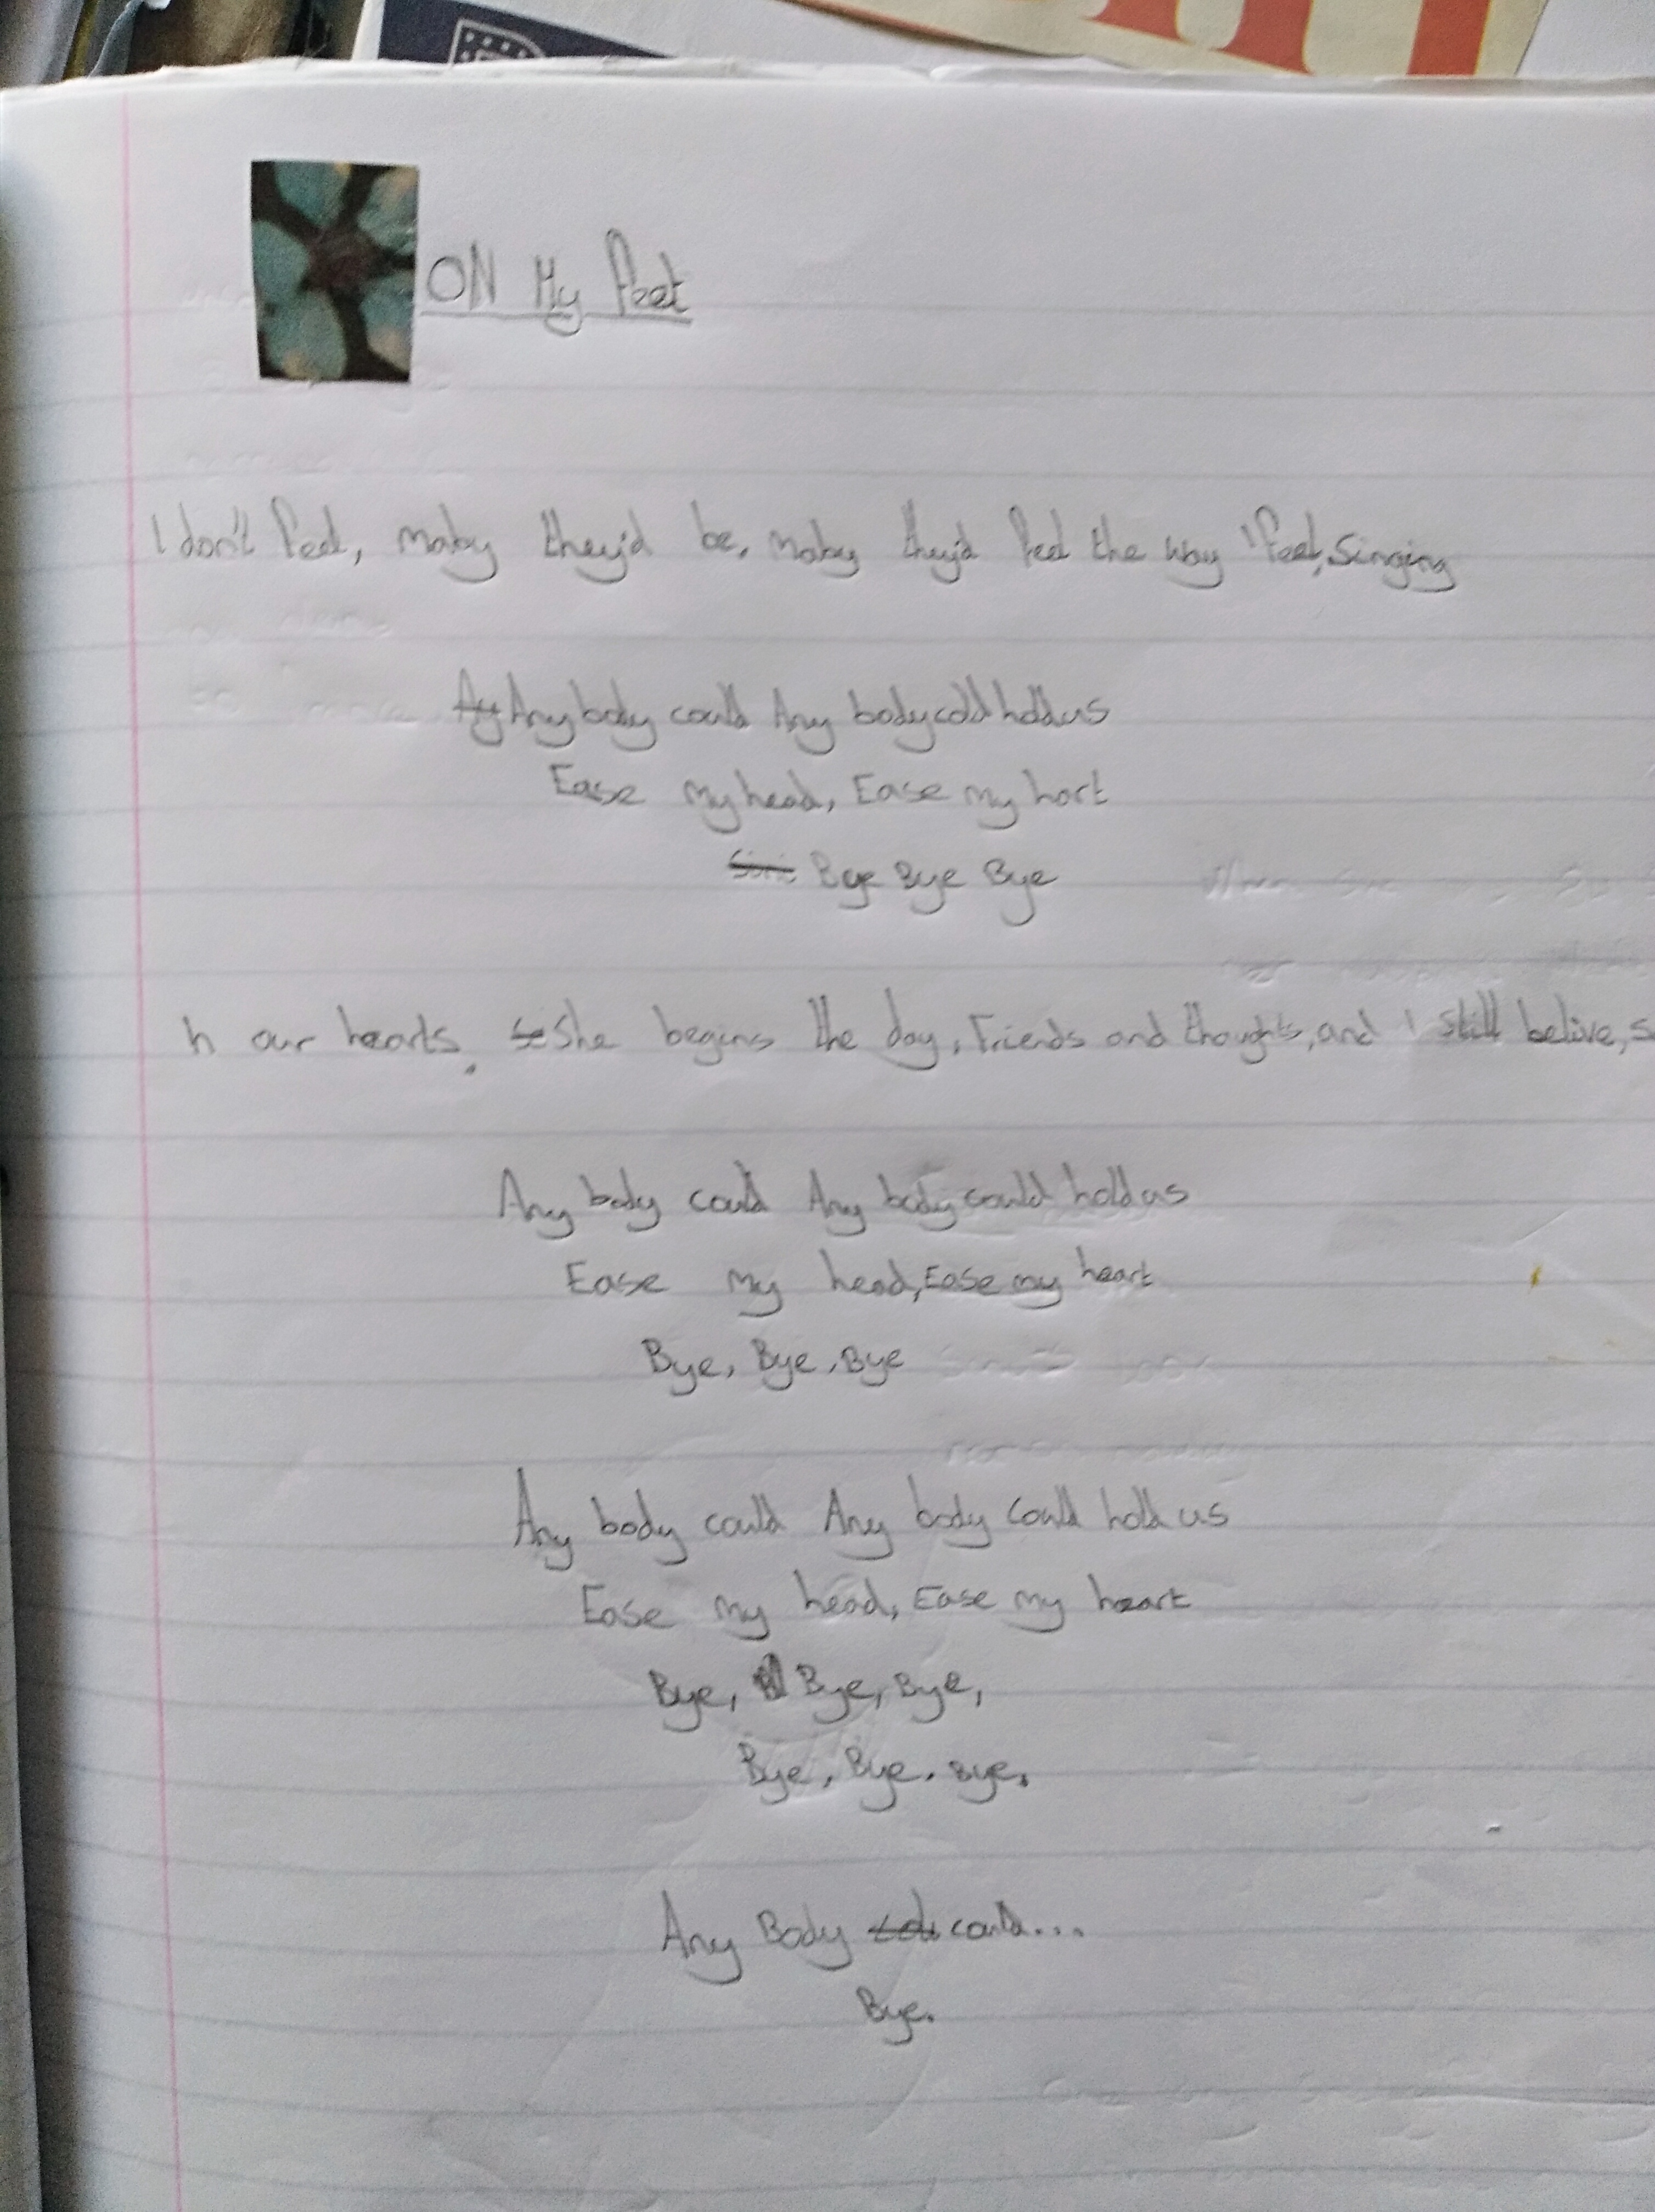 ON My Feet
I don't feel, maby they'd be, maby they'd feel the way I feel, singing
Ay Any body could Any body cold hold us
Ease my head, Ease my hart
Bye Bye Bye
h our hearts. She begins the day, Friends and thoughts, and I still belive, s
Any body could Any body could hold us
Ease my head, Ease my heart
Bye, Bye, Bye
Any body could Any body could hold us
Ease my head, Ease my heart
Bye, Bye, Bye,
Bye, Bye, Bye.
Any Body could...
Bye.